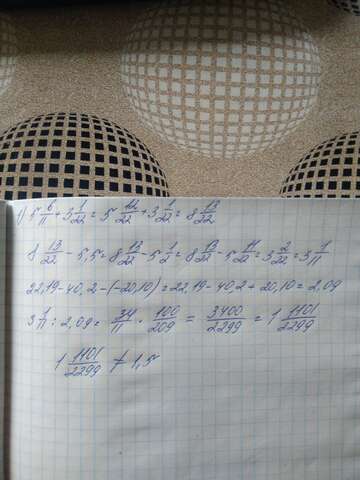 1) 5 6/11 + 3 1/22 = 5 12/22 + 3 1/22 = 8 13/22
8 13/22 - 5,5 = 8 13/22 - 5 1/2 = 8 13/22 - 5 11/22 = 3 2/22 = 3 1/11
22,19 - 40,2 - (-20,10) = 22,19 - 40,2 + 20,10 = 2,09
3 1/11 : 2,09 = 34/11 · 100/209 = 3400/2299 = 1 1101/2299
1 1101/2299 ≠ 1,5